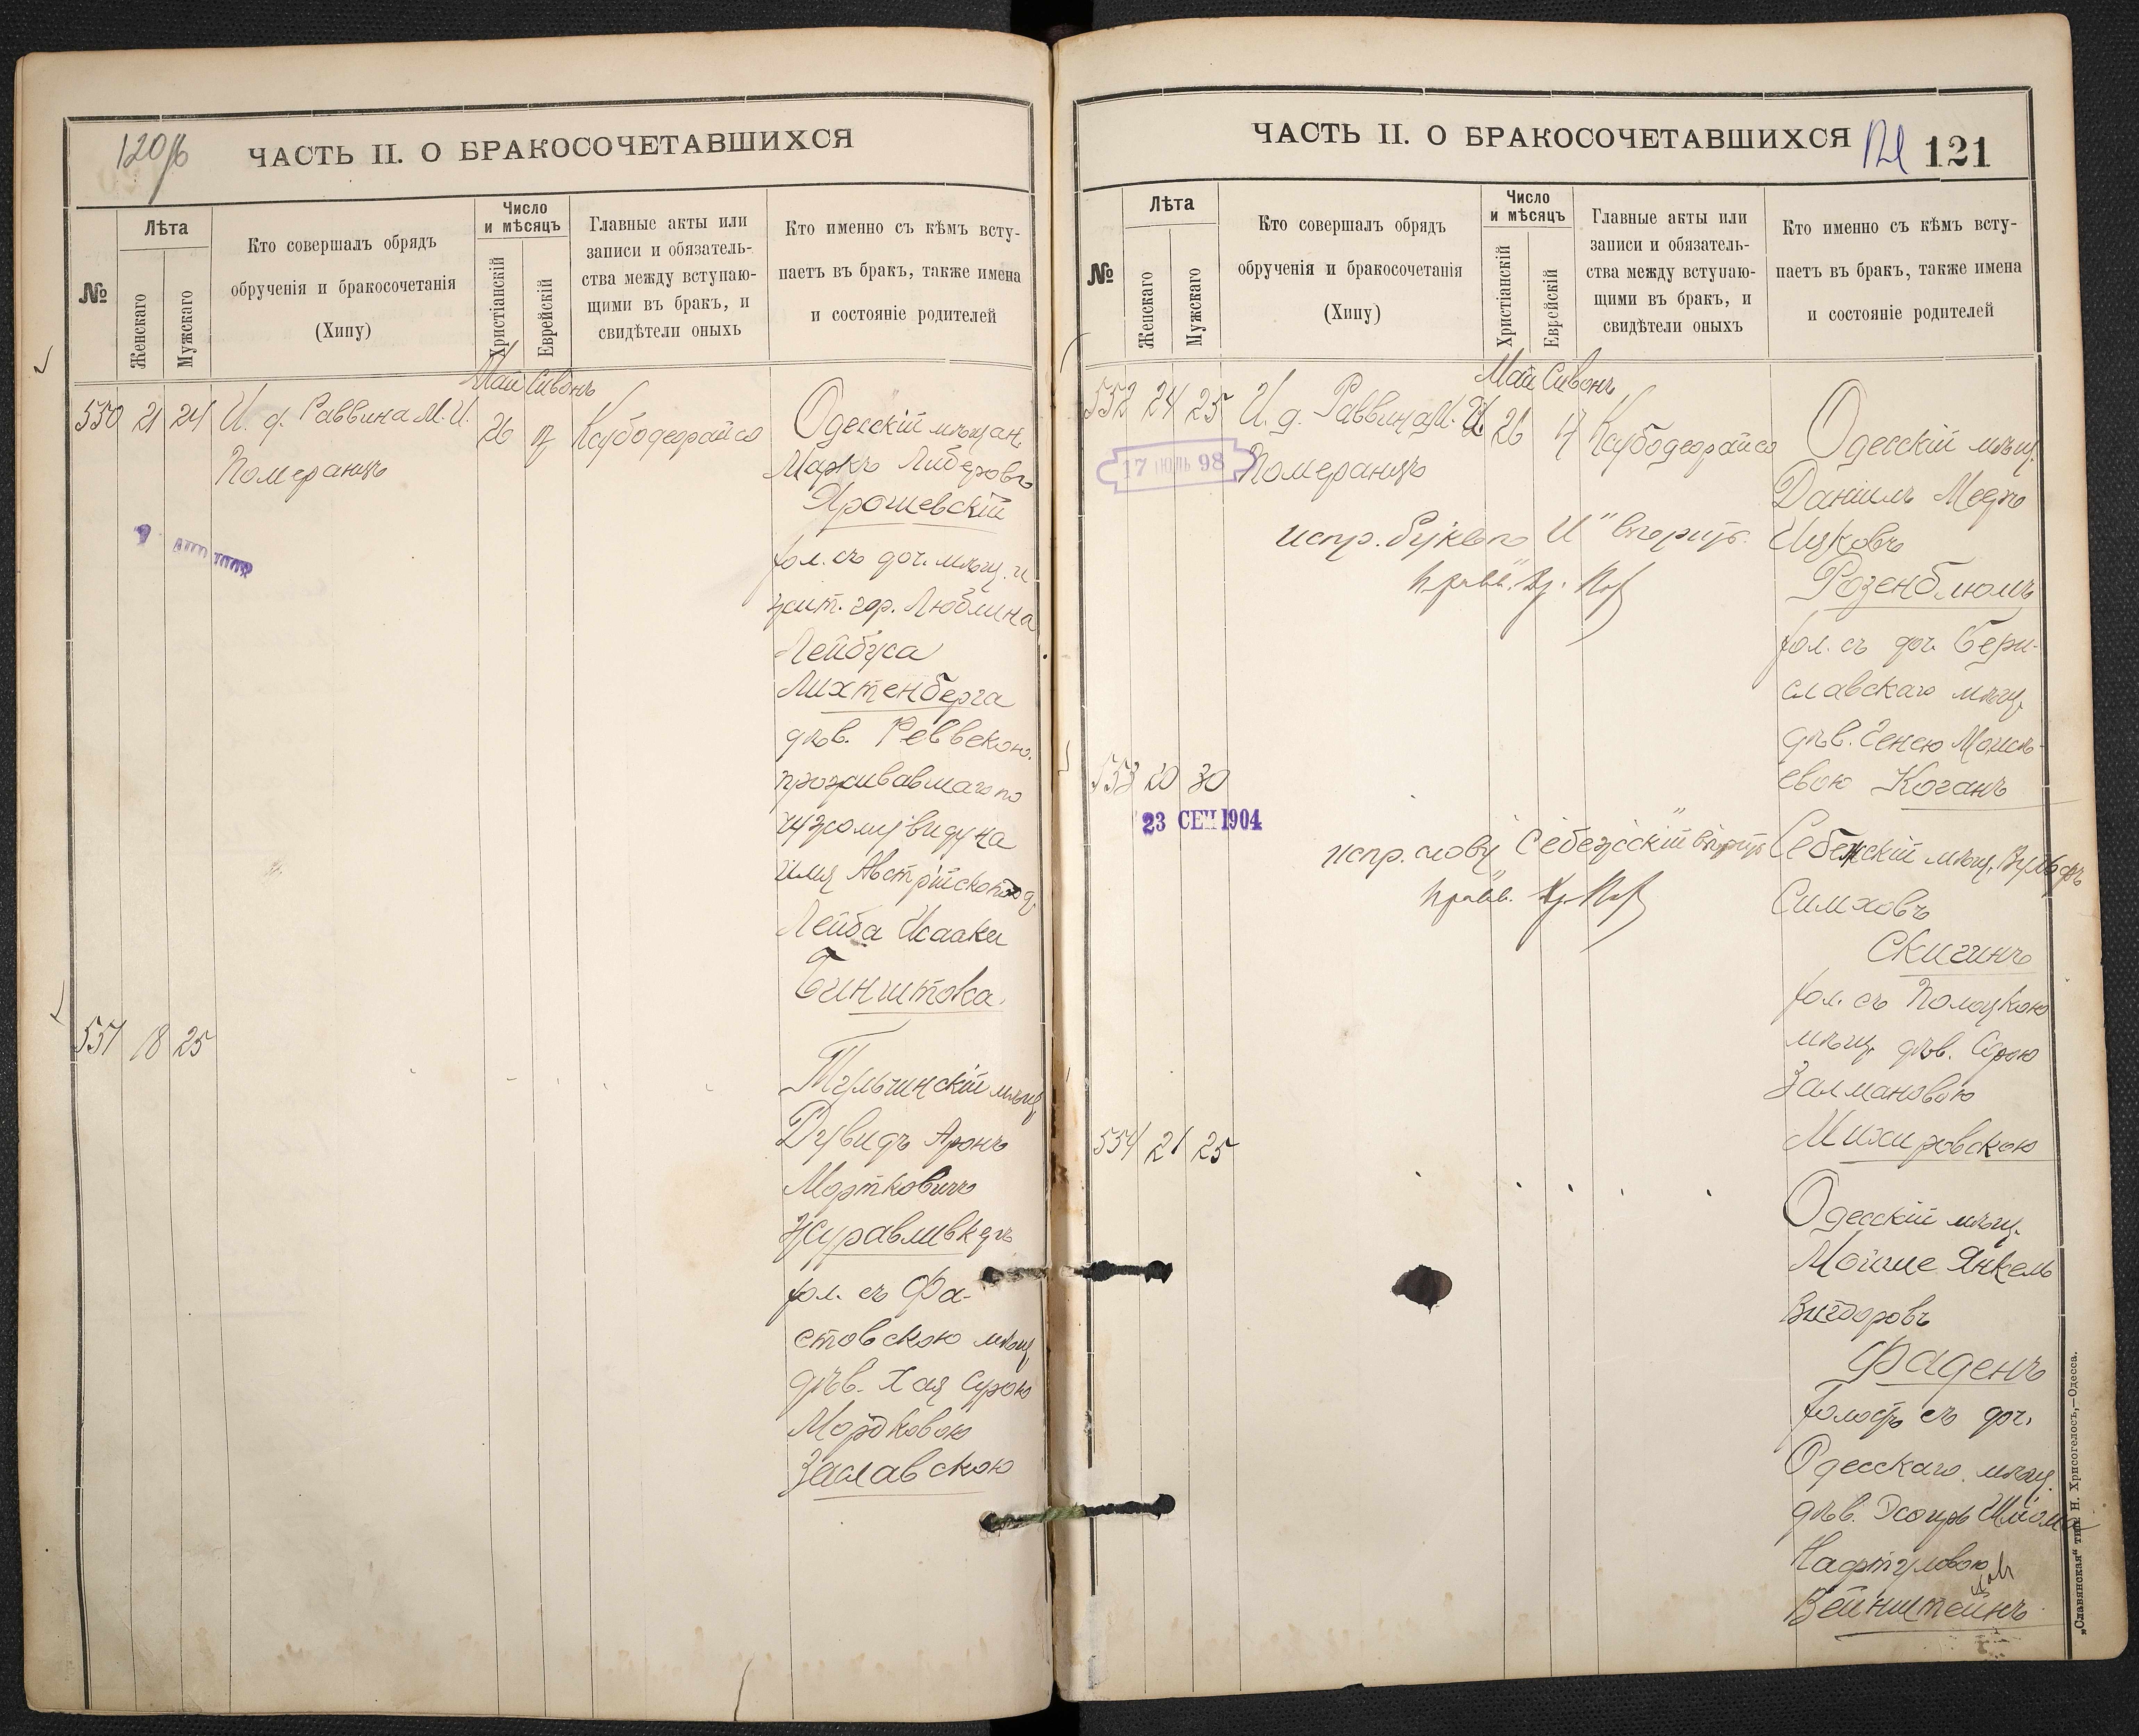 120об
ЧАСТЬ II. О БРАКОСОЧЕТАВШИХСЯ
№
Лѣта
Женскаго
Мужскаго
Кто совершалъ обрядъ
обрученія и бракосочетанія
(Хипу)
Число
и мѣсяцъ
Христіанскій
Еврейскій
Главные акты или
записи и обязатель-
ства между вступаю-
щими въ бракъ, и
свидѣтели оныхъ
Кто именно съ кѣмъ всту-
паетъ въ бракъ, также имена
и состояніе родителей
Май Сивонъ
550 21 24 И. д. Раввина М. И.
Померанцъ
26 17
Одесскій мѣщан.
Маркъ Либеровъ
Ярошевскій
хол. съ доч. мѣщ. и
жит. гор. Люблина
Лейбуса
Лихтенберга
дѣв. Реввекою.
проживавшаго по
чужому виду на
имя
Лейба Исаака
Бинштока.
551 18 25
Тульчинскій мѣщ.
Дувидъ Аронъ
Мортковичъ
Журавливкеръ
хол. съ Фа-
стовскою мѣщ.
дѣв. Хая Сурою
Мордковою
Заславскою
ЧАСТЬ II. О БРАКОСОЧЕТАВШИХСЯ
121
№
Лѣта
Женскаго
Мужскаго
Кто совершалъ обрядъ
обрученія и бракосочетанія
(Хипу)
Число
и мѣсяцъ
Христіанскій
Еврейскій
Главные акты или
записи и обязатель-
ства между вступаю-
щими въ бракъ, и
свидѣтели оныхъ
Кто именно съ кѣмъ всту-
паетъ въ бракъ, также имена
и состояніе родителей
Май Сивонъ
552 24 25 И. д. Раввина М. И.
Померанцъ
26 17
17 ІЮЛЬ 98
испр. букво „И“ вѣрить.
Одесскій мѣщ.
Даніилъ
Ицковъ
Розенблюмъ
хол. съ доч. Бери-
славскаго мѣщ.
дѣв. Генею Моисѣ-
евою Коганъ
553 20 30
23 СЕН 1904
испр. слову „Себежскій“ вѣрить
Себежскій мѣщ. Вульфъ
Симховъ
Скигинъ
хол. съ Полоцкою
мѣщ. дѣв. Сорою
Залмановою
554 21 25
Одесскій мѣщ.
Мойше Янкель
Вигдоровъ
Фаденъ
холост съ доч.
Одесскаго мѣщ.
дѣв.
Нафтуловою
Вейнштейнъ
„Славянская“ тип. Н. Хрисогелосъ,—Одесса.